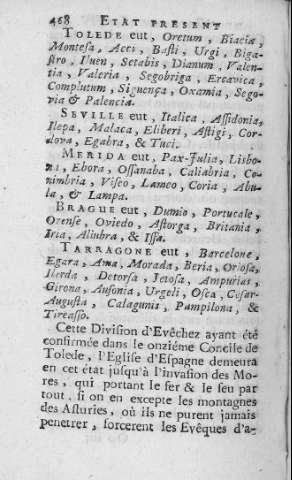 468 ETAT PRESENT
TOLEDE eut, Oretum, Biacia,
Montesa, Acci, Basti, Urgi, Biga-
stro, Iluen, Setabis, Dianum, Valen-
tia, Valeria, Segobriga, Ercavica,
Complutum, Siguença, Oxamia, Sego-
via & Palencia.
SEVILLE eut, Italica, Assidonia,
Ilepa, Malaca, Eliberi, Astigi, Cor-
dova, Egabra, & Tuci.
MERIDA eut, Pax-Julia, Lisbo-
ni, Ebora, Ossanaba, Caliabria, Co-
nimbria, Viseo, Lameo, Coria, Abu-
la, & Lampa.
BRAGUE eut, Dumio, Portucale,
Orense, Oviedo, Astorga, Britania,
Iria, Aliubra, & Issa.
TARRAGONE eut, Barcelone,
Egara, Ama, Morada, Beria, Oriosa,
Ilerda, Detorsa, Jetosa, Ampurias,
Girona, Ausonia, Urgeli, Osca, Cesar-
Augusta, Calagunis, Pampilona, &
Tireasso.
Cette Division d'Evêchez ayant été
confirmée dans le onziéme Concile de
Tolede, l'Eglise d'Espagne demeura
en cet état jusqu'à l'invasion des Mo-
res, qui portant le fer & le feu par
tout, si on en excepte les montagnes
des Asturies, où ils ne purent jamais
penetrer, forcerent les Evêques d'a-